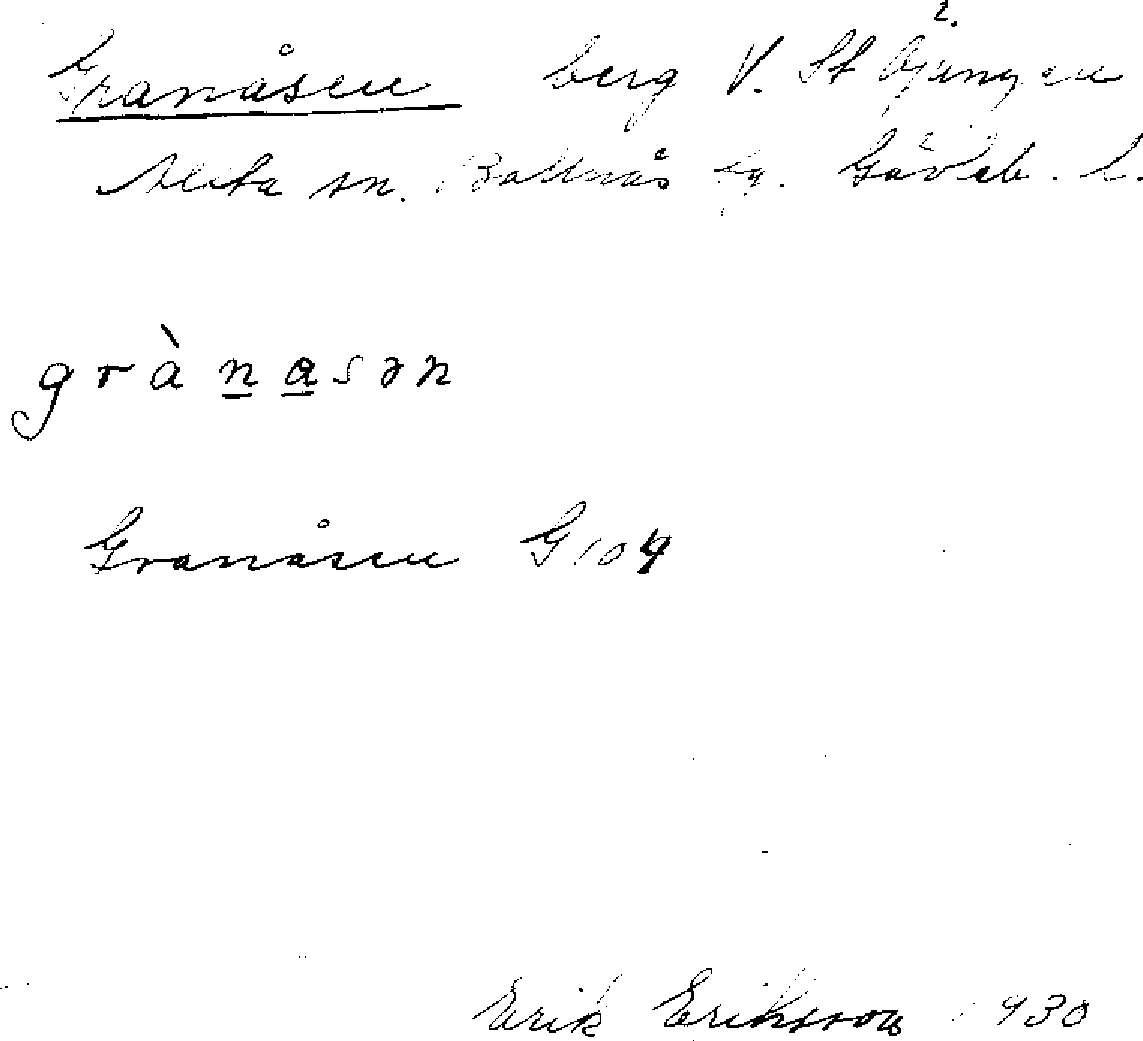 Granåsen berg V. St Öjungen 2.
Alfta sn. Bollnäs tg. Gävleb. l.
grànasən
Granåsen G 104
Erik Eriksson 1930